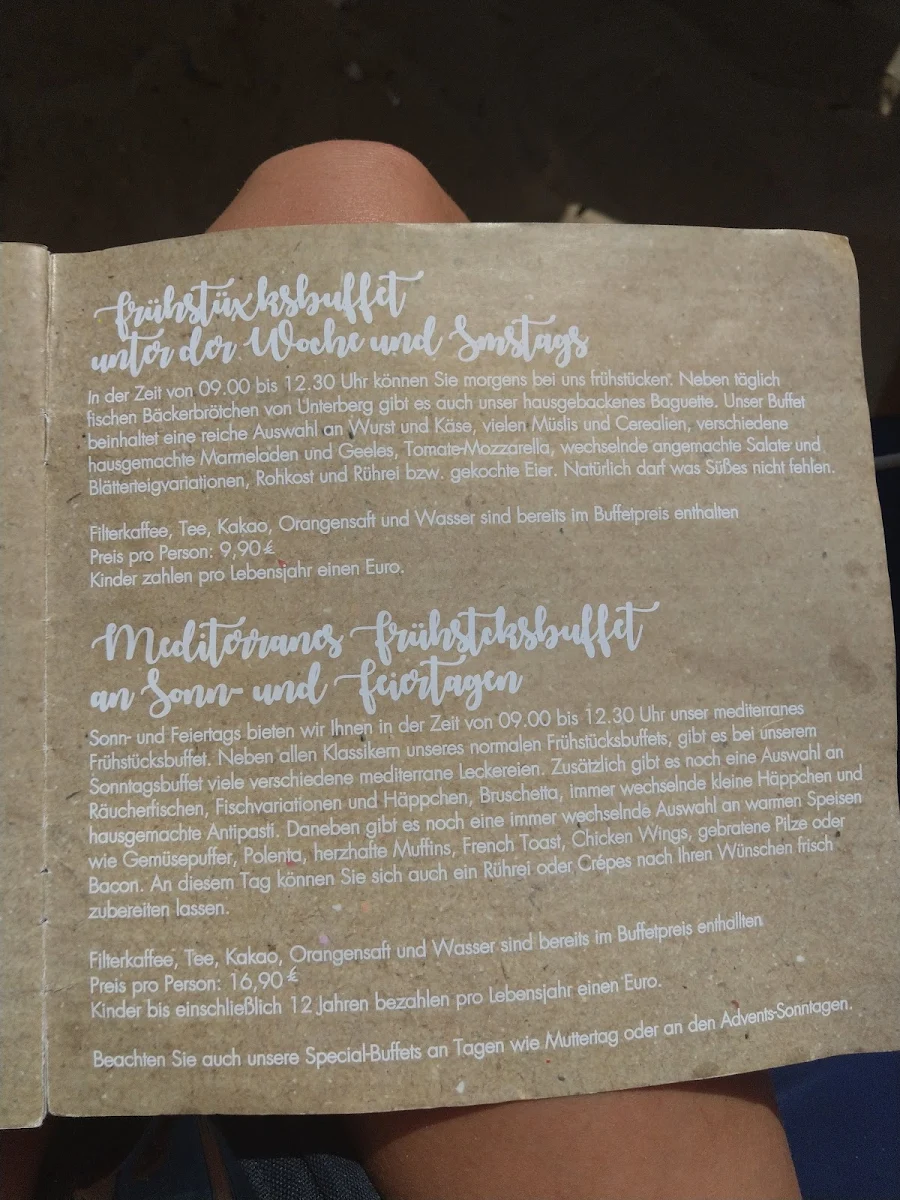 frühstüxksbuffet
unter der Woche und Smstags
In der Zeit von 09.00 bis 12.30 Uhr können Sie morgens bei uns frühstücken. Neben täglich
fischen Bäckerbrötchen von Unterberg gibt es auch unser hausgebackenes Baguette. Unser Buffet
beinhaltet eine reiche Auswahl an Wurst und Käse, vielen Müslis und Cerealien, verschiedene
hausgemachte Marmeladen und Geeles, Tomate-Mozzarella, wechselnde angemachte Salate und
Blätterteigvariationen, Rohkost und Rührei bzw. gekochte Eier. Natürlich darf was Süßes nicht fehlen.
Filterkaffee, Tee, Kakao, Orangensaft und Wasser sind bereits im Buffetpreis enthalten
Preis pro Person: 9,90 €
Kinder zahlen pro Lebensjahr einen Euro.
Mediterranes frühsteksbuffet
an Sonn- und feiertagen
Sonn- und Feiertags bieten wir Ihnen in der Zeit von 09.00 bis 12.30 Uhr unser mediterranes
Frühstücksbuffet. Neben allen Klassikern unseres normalen Frühstücksbuffets, gibt es bei unserem
Sonntagsbuffet viele verschiedene mediterrane Leckereien. Zusätzlich gibt es noch eine Auswahl an
Räucherfischen, Fischvariationen und Häppchen, Bruschetta, immer wechselnde kleine Häppchen und
hausgemachte Antipasti. Daneben gibt es noch eine immer wechselnde Auswahl an warmen Speisen
wie Gemüsepuffer, Polenta, herzhafte Muffins, French Toast, Chicken Wings, gebratene Pilze oder
Bacon. An diesem Tag können Sie sich auch ein Rührei oder Crépes nach Ihren Wünschen frisch
zubereiten lassen.
Filterkaffee, Tee, Kakao, Orangensaft und Wasser sind bereits im Buffetpreis enthallten
Preis pro Person: 16,90 €
Kinder bis einschließlich 12 Jahren bezahlen pro Lebensjahr einen Euro.
Beachten Sie auch unsere Special-Buffets an Tagen wie Muttertag oder an den Advents-Sonntagen.